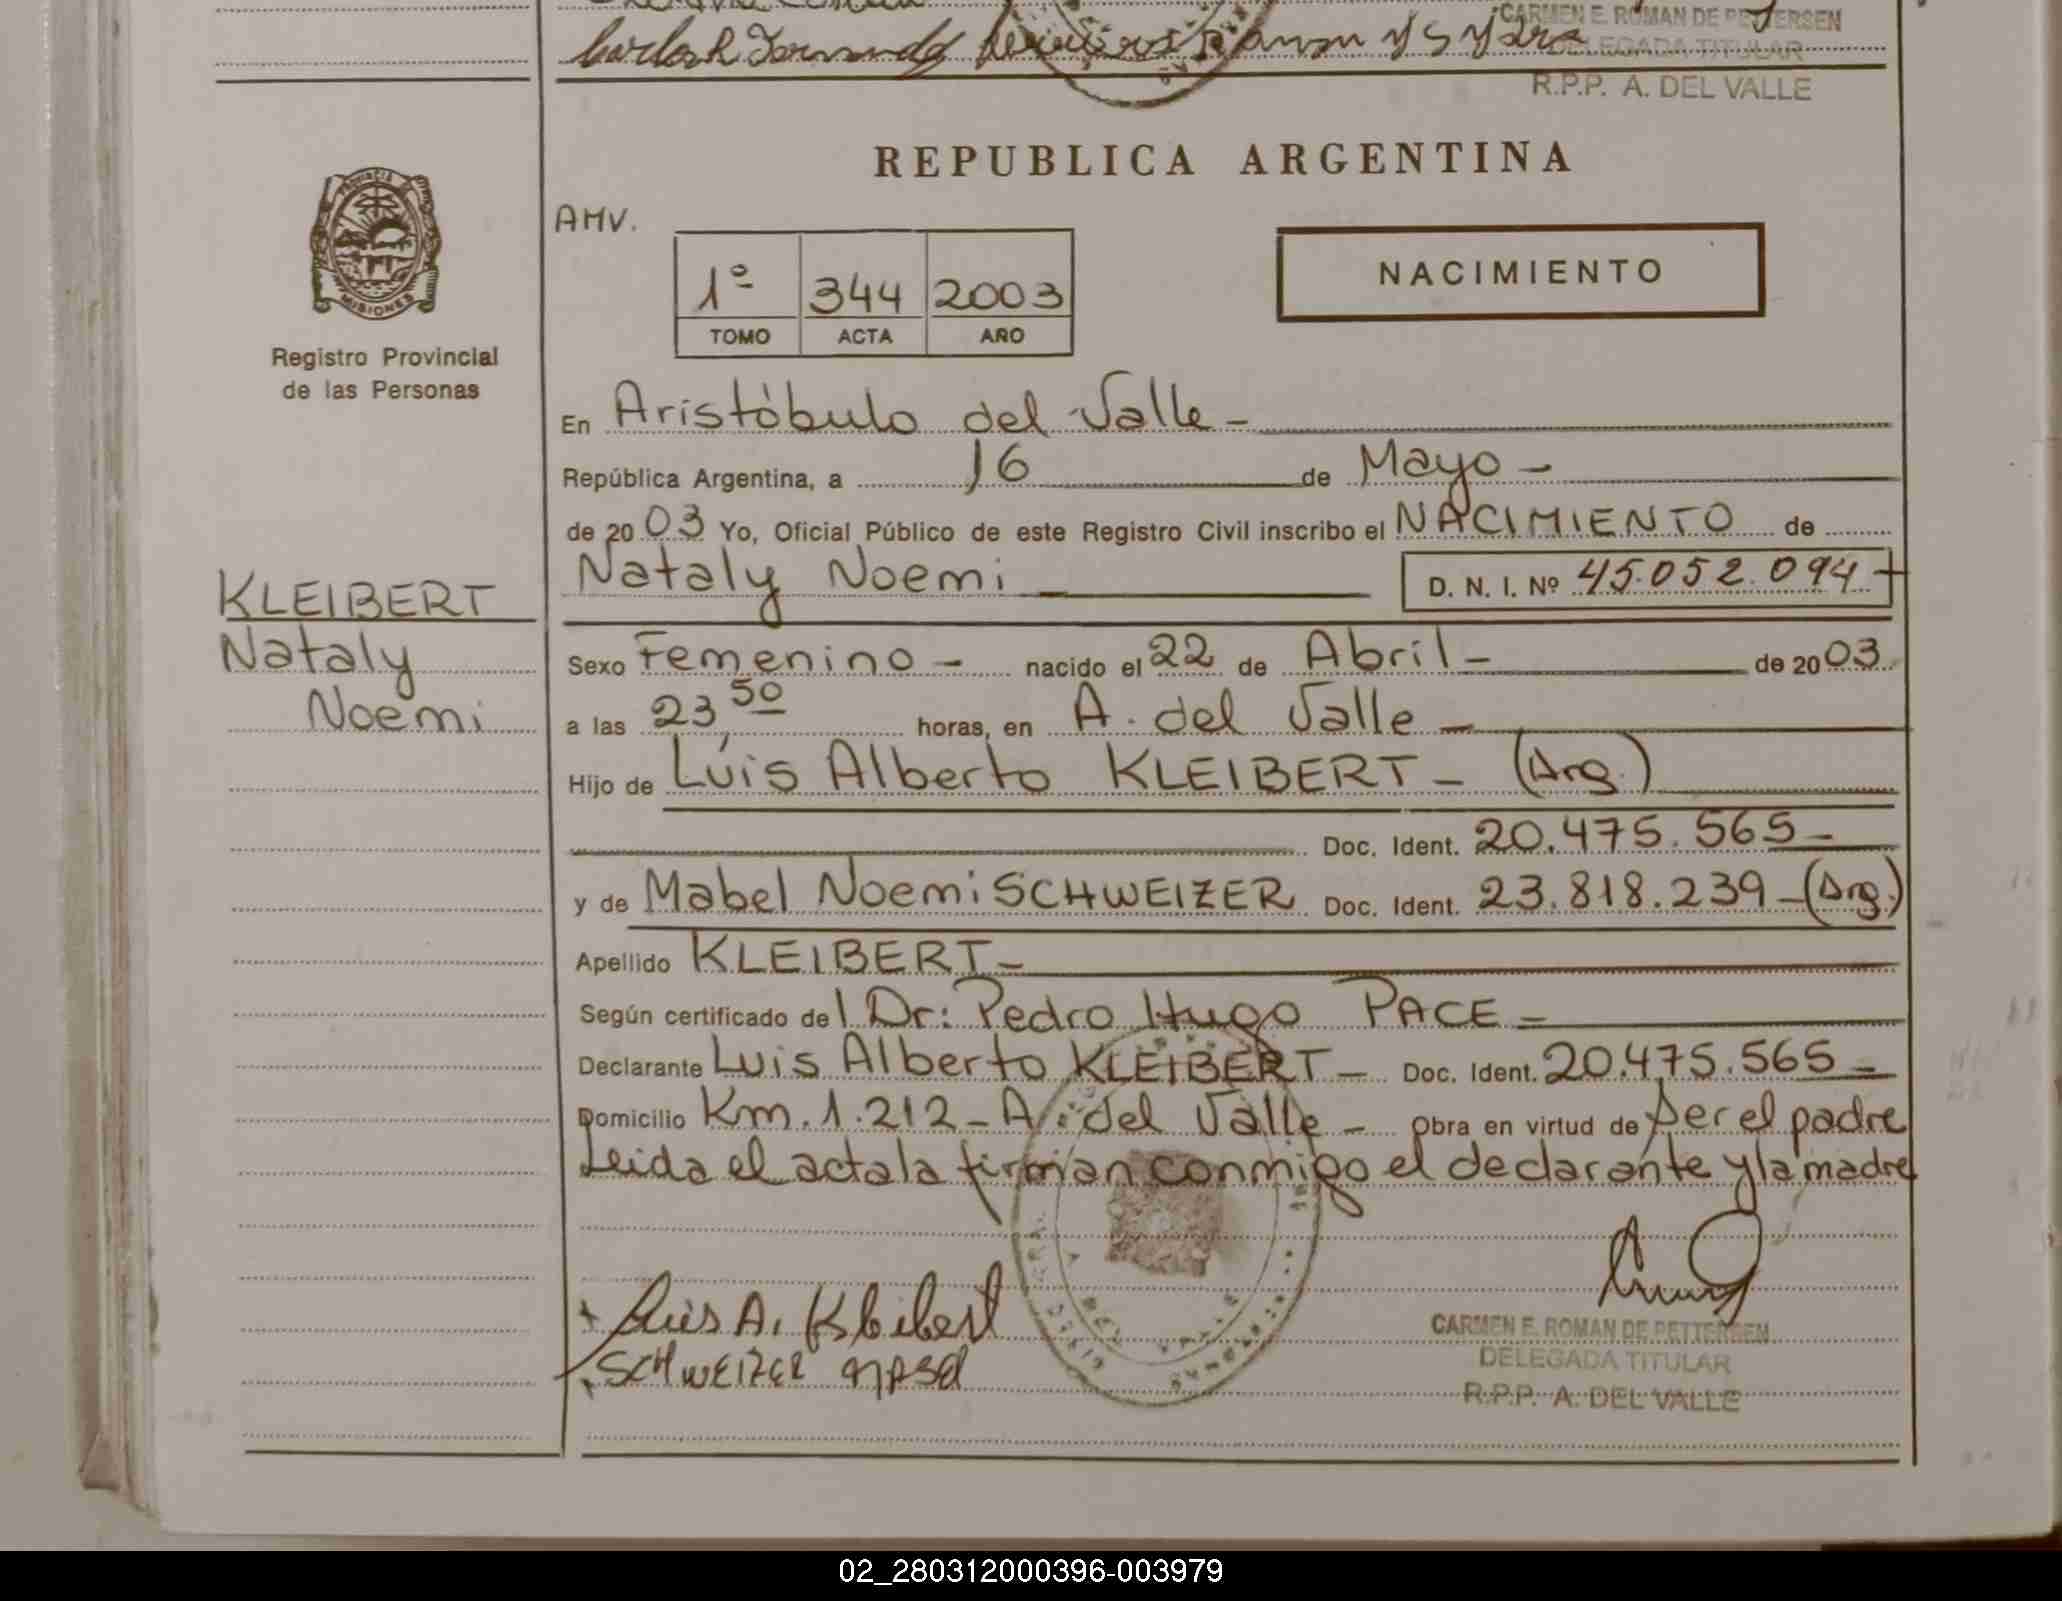 CARMEN E. ROMAN DE PETTERSEN
DELEGADA TITULAR
R.P.P. A. DEL VALLE
PROVINCIA DE
MISIONES
Registro Provincial
de las Personas
REPUBLICA ARGENTINA
AMV.
1º 344 2003
TOMO ACTA AÑO
NACIMIENTO
En Aristóbulo del Valle -
República Argentina, a 16 de Mayo -
de 2003 Yo, Oficial Público de este Registro Civil inscribo el NACIMIENTO de
Nataly Noemi D. N. I. Nº 45.052.094
KLEIBERT
Nataly
Noemi
Sexo Femenino - nacido el 22 de Abril - de 2003
a las 23 50 horas, en A. del Valle -
Hijo de Luis Alberto KLEIBERT - (Arg.)
Doc. Ident. 20.475.565 -
y de Mabel Noemi SCHWEIZER Doc. Ident. 23.818.239 - (Arg.)
Apellido KLEIBERT -
Según certificado del Dr: Pedro Hugo PACE -
Declarante Luis Alberto KLEIBERT - Doc. Ident. 20.475.565 -
Domicilio Km. 1.212 - A. del Valle - Obra en virtud de ser el padre
Leida el acta la firman conmigo el declarante y la madre
Luis A. Kleibert
SCHWEIZER
CARMEN E. ROMAN DE PETTERSEN
DELEGADA TITULAR
R.P.P. A. DEL VALLE
02_280312000396-003979